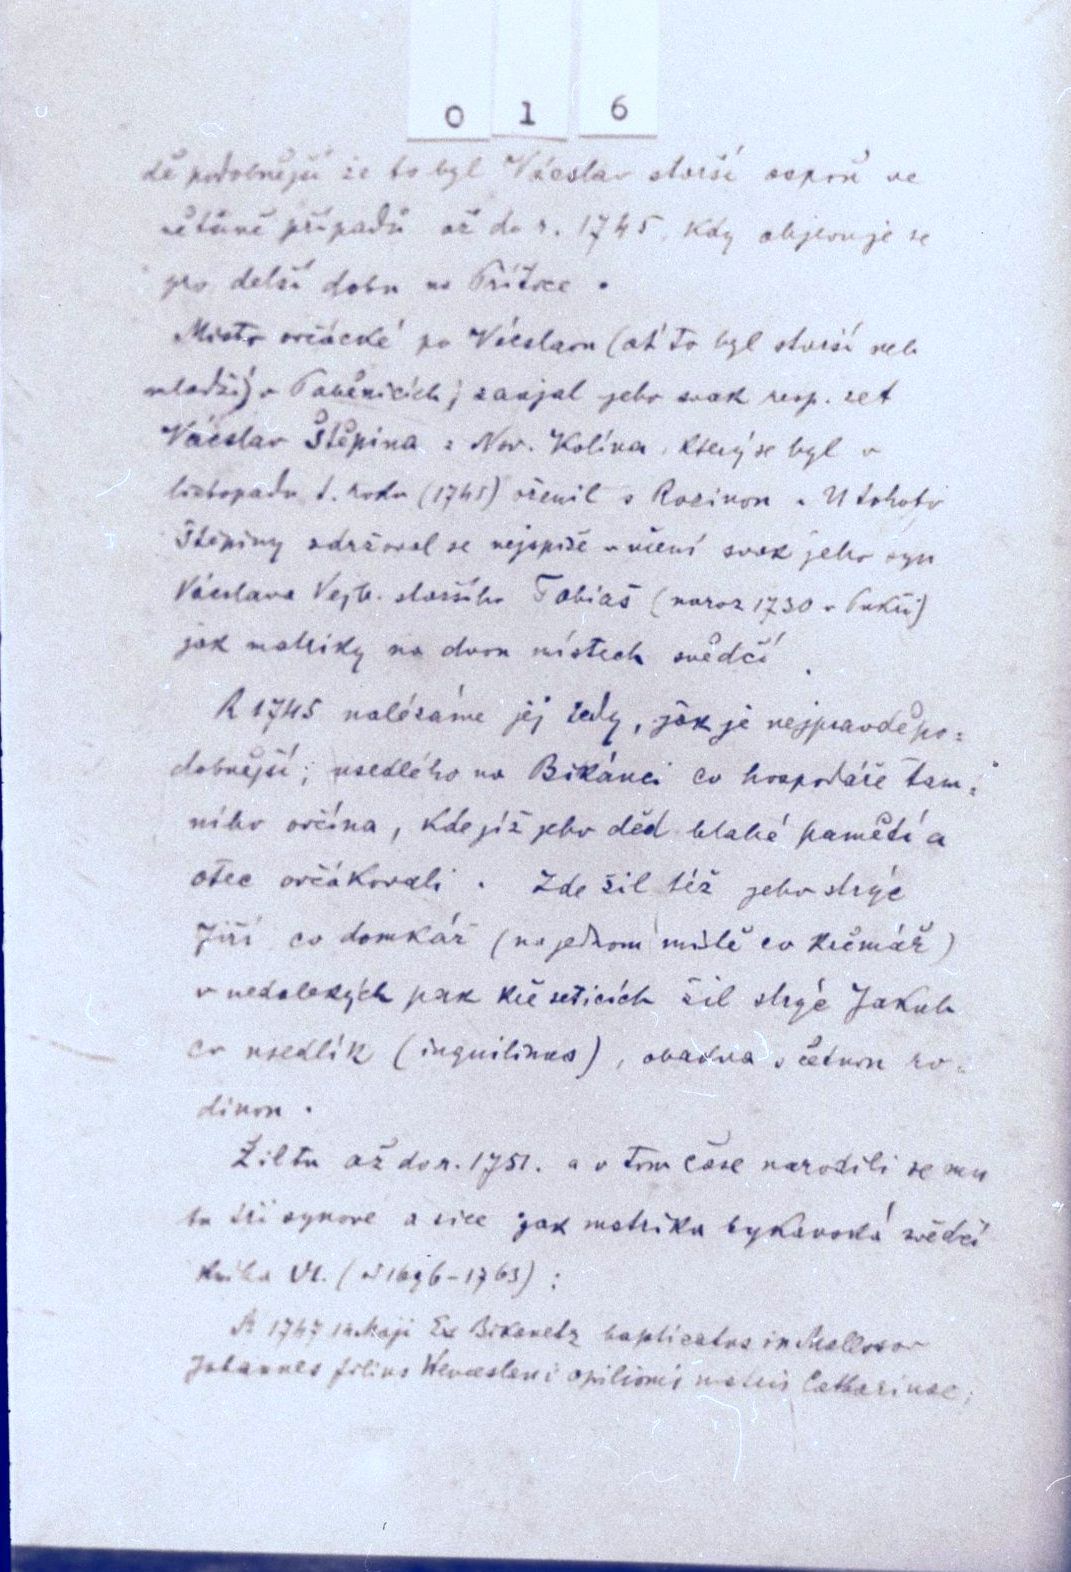 0 1 6
dě podobnější že to byl Václav starší aspoň ve
většině případů až do r. 1745, kdy objevuje se
pro delší dobu na
Místo ovčácké po Václavu (ať to byl starší neb
mladší) v Paběnicích; zaujal jeho svak resp. zet
Václav Štěpina z Nov. Kolína, který se byl v
listopadu t. roku (1745) oženil s Rozinou. U tohoto
Štěpiny zdržoval se nejspíše v učení svak jeho syn
Václava Vejb. staršího Tobiáš (naroz 1730 v
jak matriky na dvou místech svědčí.
R 1745 nalézáme jej tedy, jak je nejpravděpo=
dobnější; usedlého na Bikánci co hospodáře tam=
ního ovčína, kde již jeho děd blahé paměti a
otec ovčákovali. Zde žil též jeho strýc
Jiří co domkář (na jednom místě co krčmář)
v nedalekých pak Křeseticích žil strýc Jakub
co usedlík (inquilinus), obadva s četnou ro=
dinou.
Žil tu až do r. 1751. a v tom čase narodili se mu
tu tři synové a sice jak matrika bykanská svědčí
kniha VI. (od 1696-1763):
A 1747 14 Maji Ex Bikanetz baptizatus in
Johannes filius Wenceslai opilionis matris Catharinae;